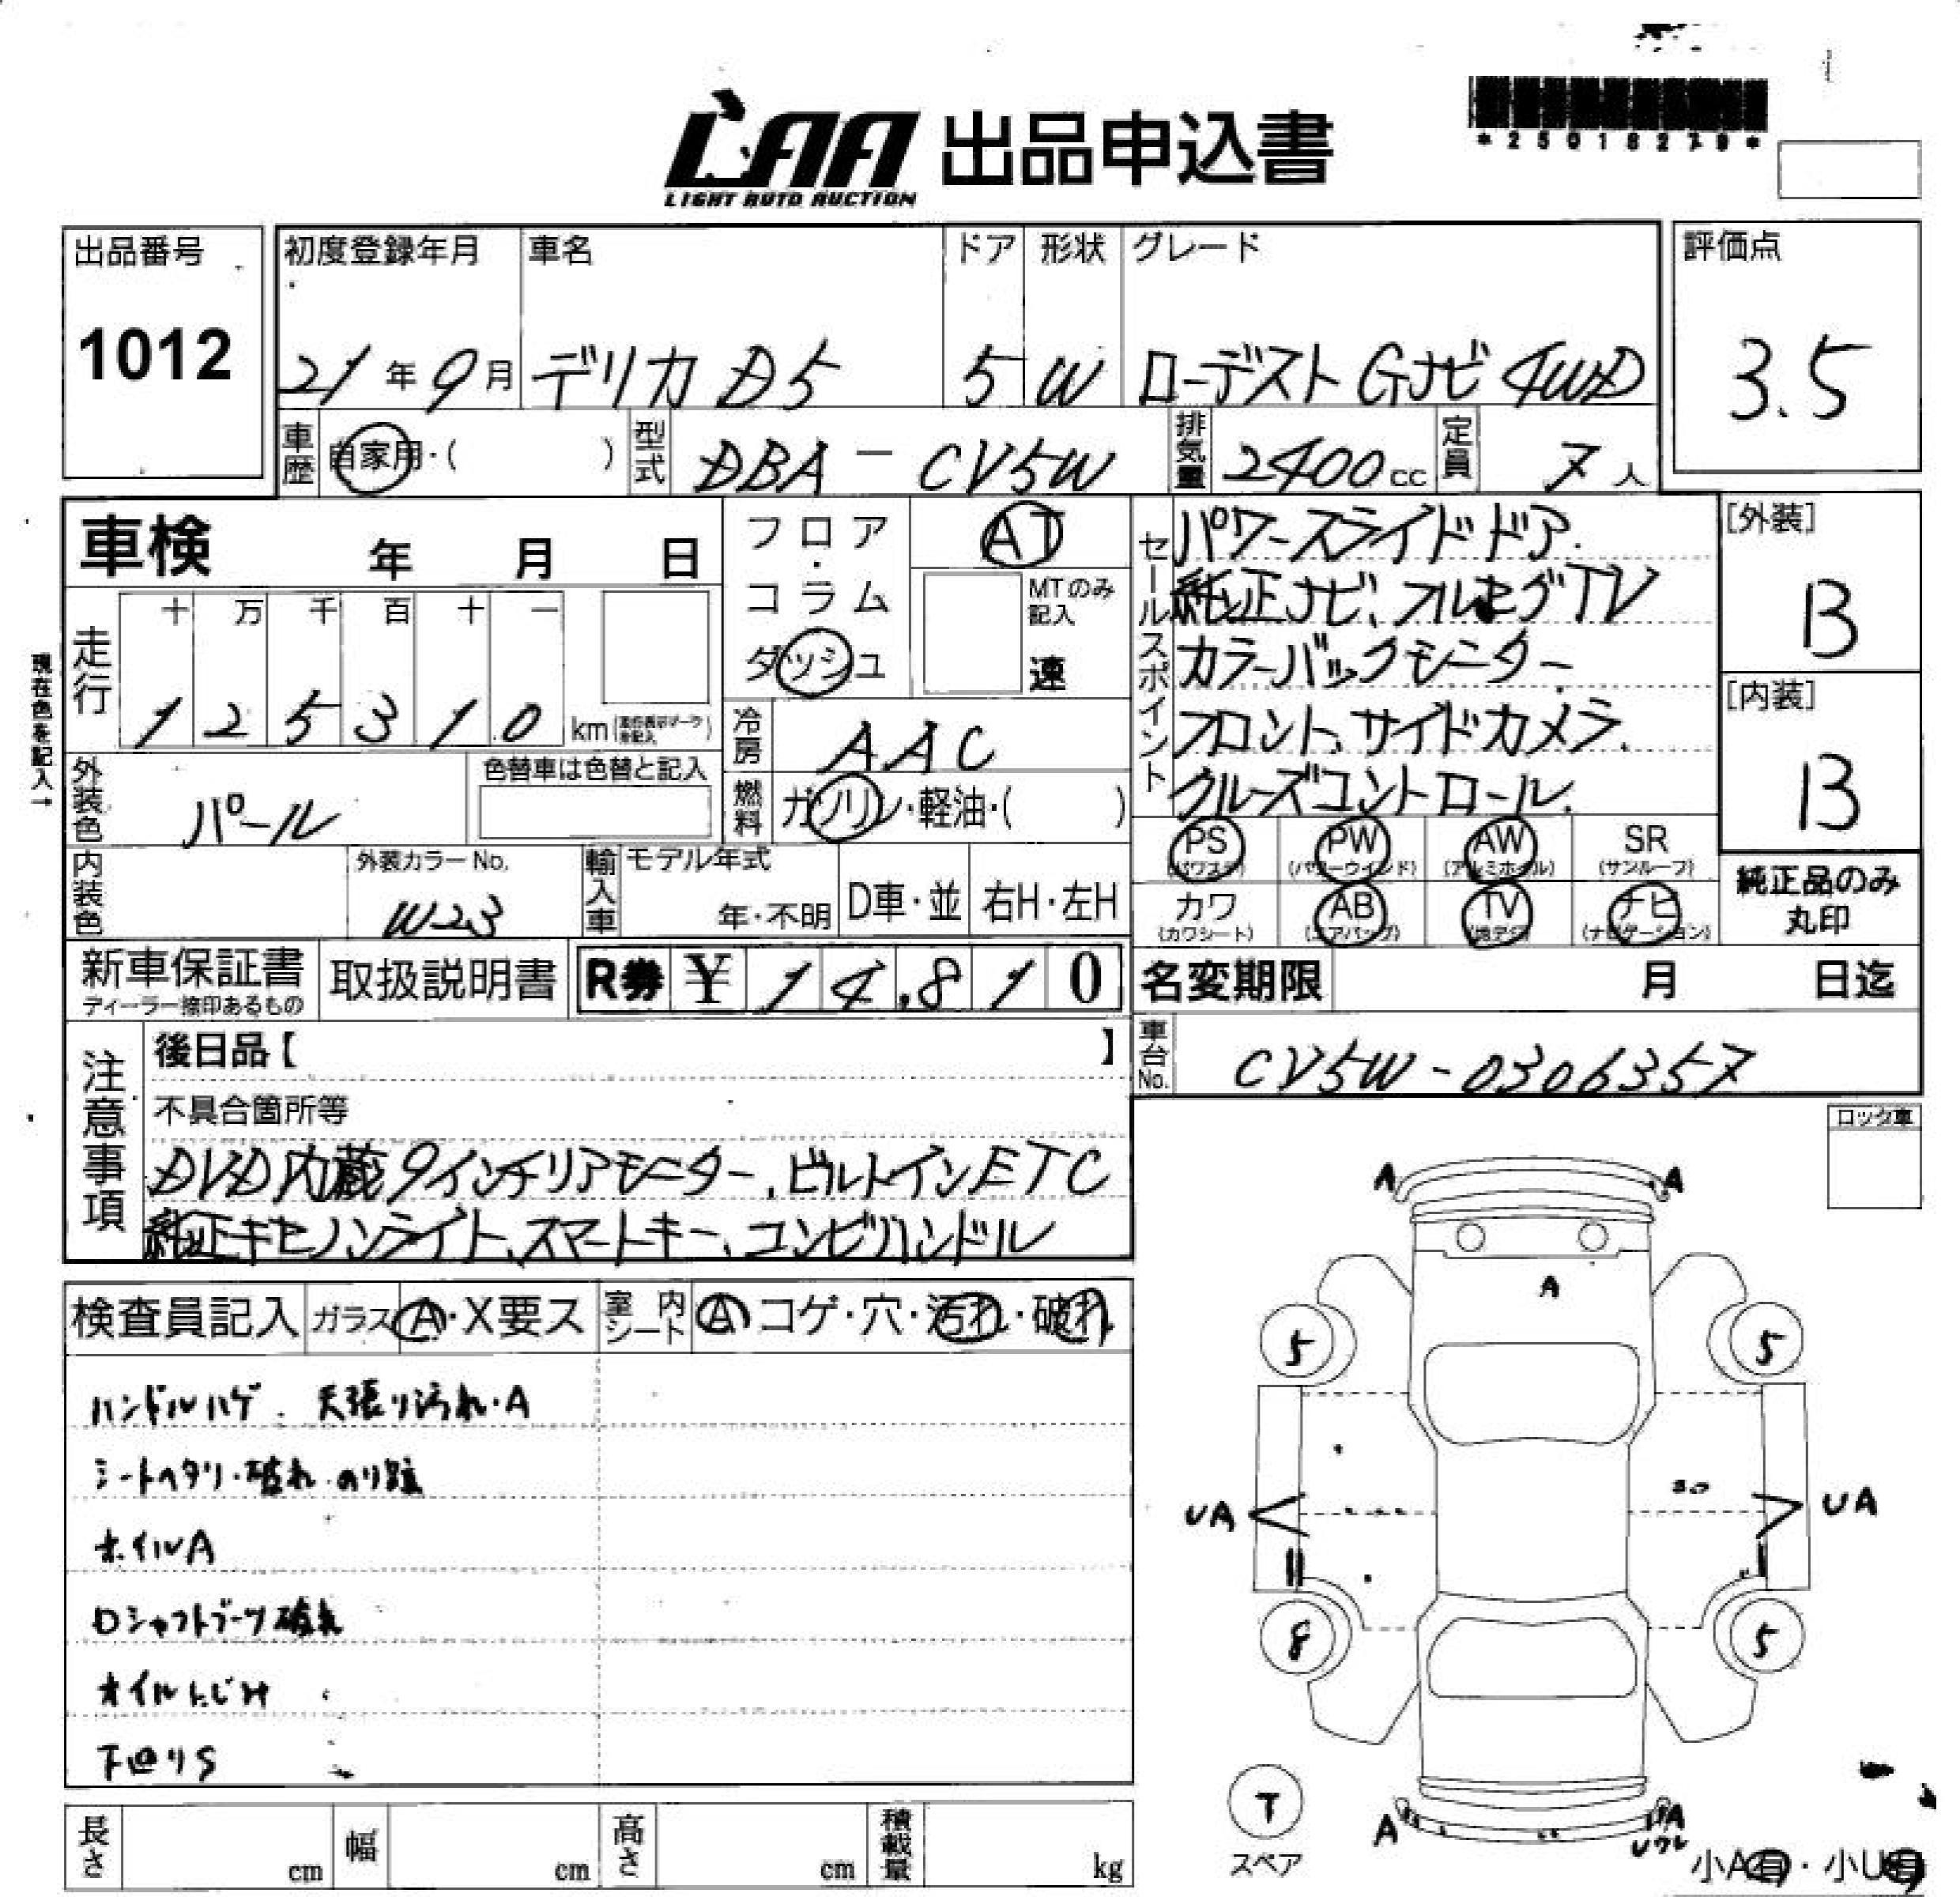 LAA 出品申込書
LIGHT AUTO AUCTION
*25018279*
出品番号
1012
初度登録年月 車名 ドア 形状 グレード
21年9月 デリカD5 5 W ローデストGナビ4WD
評価点
3.5
車歴 自家用・( ) 型式 DBA-CV5W 排気量 2400cc 定員 7人
車検 年 月 日
フロア・コラム
ダッシュ
AT
MTのみ記入
速
走行 十 万 千 百 十 一
1 2 5 3 1 0 km
現在色を記入→
外装色 パール 色替車は色替と記入
冷房 AAC
燃料 ガソリン・軽油・( )
内装色 外装カラーNo. W23
輸入車 モデル年式 年・不明 D車・並 右H・左H
セールスポイント
パワースライドドア.
純正ナビ、フルセグTV
カラーバックモニター
フロント、サイドカメラ.
クルーズコントロール.
[外装]
B
[内装]
B
PS (パワステ) PW (パワーウインド) AW (アルミホイル) SR (サンルーフ)
カワ (カワシート) AB (エアバッグ) TV (地デジ) ナビ (ナビゲーション)
純正品のみ丸印
新車保証書 ディーラー捺印あるもの 取扱説明書 R券 ¥ 14,810
名変期限 月 日迄
車台No. CV5W-0306357
注意事項
後日品【 】
不具合箇所等
DVD内蔵9インチリアモーター、ビルトインETC
純正キセノンライト、スマートキー、コンビハンドル
ロック車
検査員記入 ガラス A・X要ス 室内シート A コゲ・穴・汚れ・破れ
ハンドルハゲ. 天張り汚れ・A
シートヘタリ・破れ・のり跡
ホイルA
Dシャフトブーツ破れ
オイルにじみ
下回りS
A A
A
5 5
UA UA
8 5
T
スペア
A A
Uワレ
小A有・小U有
長さ cm 幅 cm 高さ cm 積載量 kg